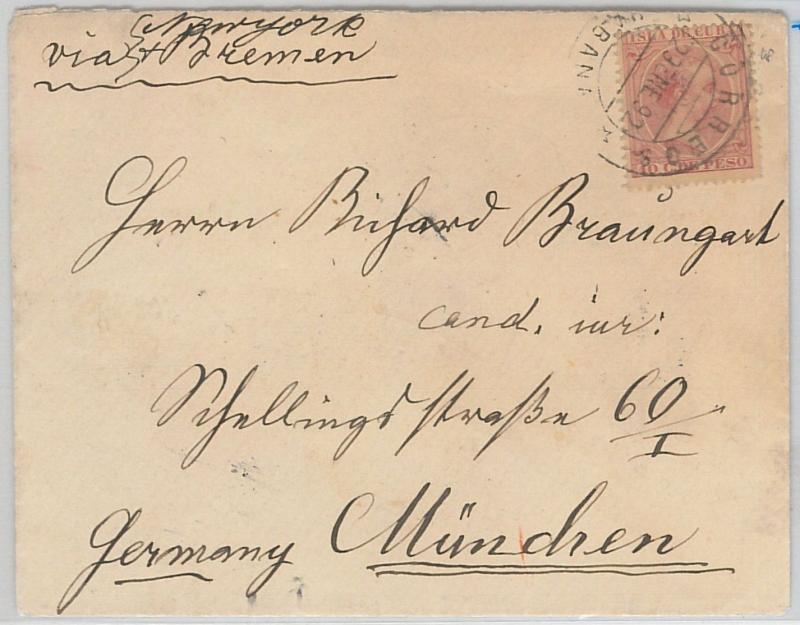 Newyork
via & Bremen
ISLA DE CUBA
CORREOS
10 C. DE PESO
Herrn Richard Braungart
cand. iur:
Schellingsstraße 60/I
Germany München